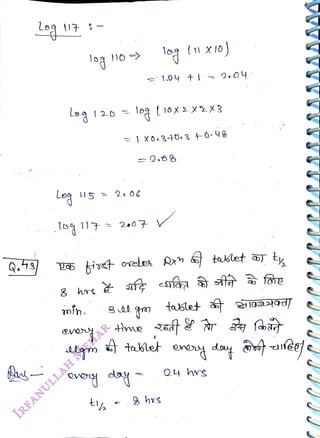 Log 117 :-
log 110 → log (11 x 10)
= 1.04 + 1 = 2.04
Log 120 = log (10 x 2 x 2 x 3
= 1 x 0.3 + 0.3 + 0.48
= 2.08
Log 115 = 2.06
log 117 = 2.07 ✓
Q.43) एक first order Rxn की tablet का t1/2
8 hrs है यदि व्यक्ति को जीने के लिए
min. 3 ugm tablet की आवश्यकता
every time रहती है तो उसे कितने
ugm की tablet every day लेनी चाहिए
every day = 24 hrs
t1/2 = 8 hrs
IRFANULLAH